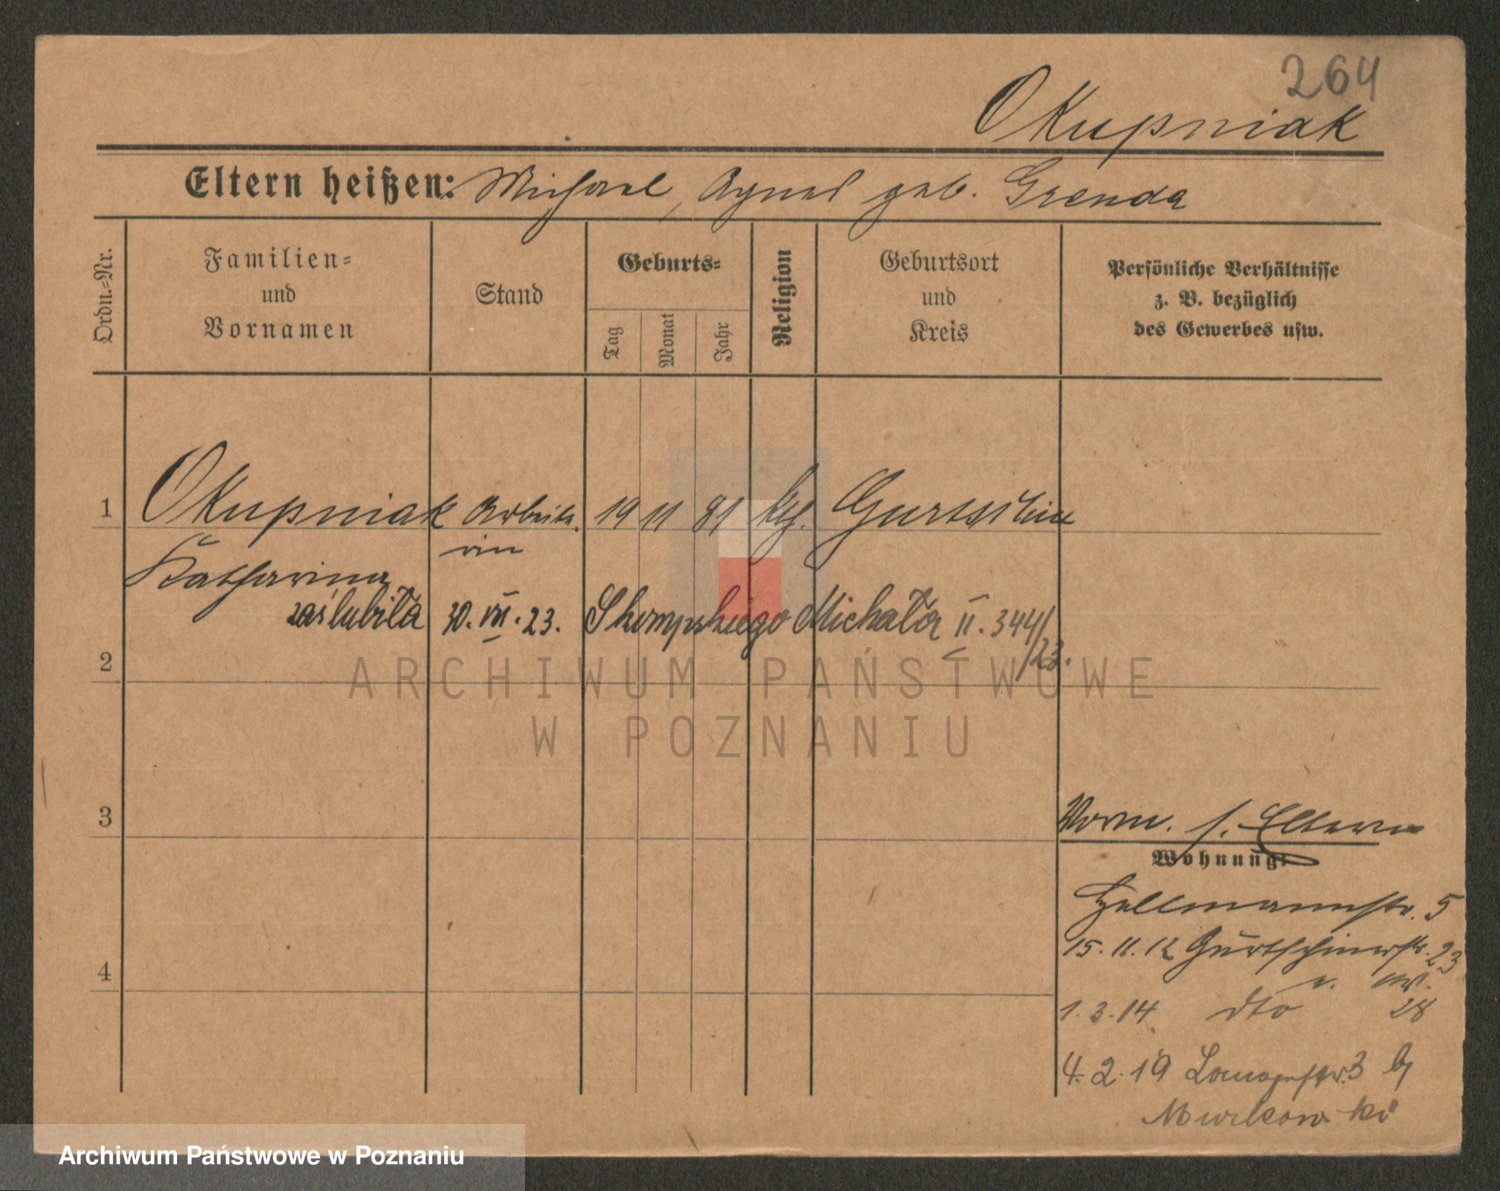 264
Okupniak
Eltern heißen: Michael, Agnes geb. Grenda
Ordn.=Nr.
Familien=
und
Vornamen
Stand
Geburts=
Tag
Monat
Jahr
Religion
Geburtsort
und
Kreis
Persönliche Verhältnisse
z. B. bezüglich
des Gewerbes usw.
1 Okupniak Arbeite- 19 11 81 kth. Gurtschin
Katharina rin
zaślubiła 30. VII. 23. Skompskiego Michała II. 344/23.
2
3
Vorm. s. Eltern
Wohnung:
Hellmannstr. 5
4
15. 11. 12 Gurtschinerstr. 23
1. 3. 14 dto 28
4. 2. 19 3 b/
Murkowski
ARCHIWUM PAŃSTWOWE
W POZNANIU
Archiwum Państwowe w Poznaniu